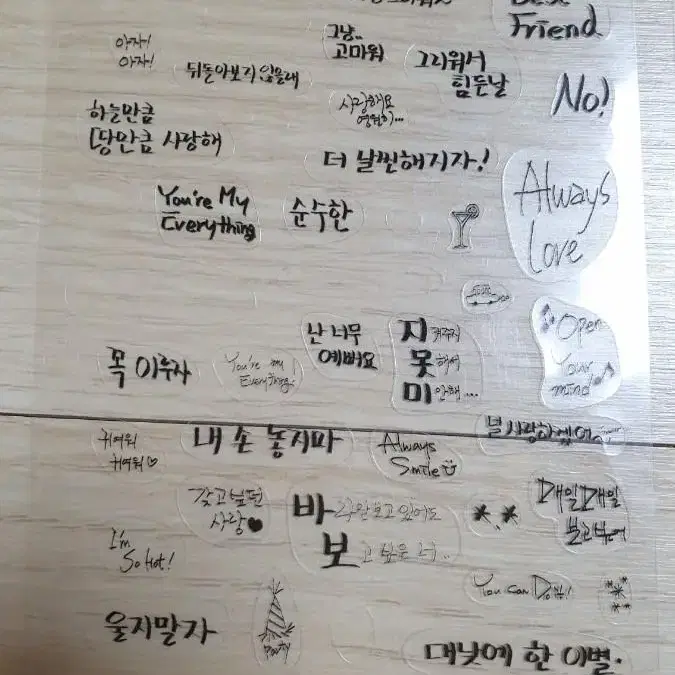 Friend
아자!
아자!
그냥..
고마워
뒤돌아보지 않을래
그리워서
힘든날
No!
하늘만큼
땅만큼 사랑해
사랑해요
영원히...
더 날씬해지자!
You're My
Everything
순수한
Always
Love
Open
Your
mind
난 너무
예뻐요
지켜주지
못해서
미안해...
꼭 이루자
You're my
Everything!
귀여워
귀여워♡
내 손 놓지마
Always
Smile
널 사랑하겠어
갖고싶던
사랑♥
바라만보고있어도
보고싶은 너..
매일매일
보고싶어
I'm
So Hot!
You can Do it!
울지말자
대낮에 한 이별.